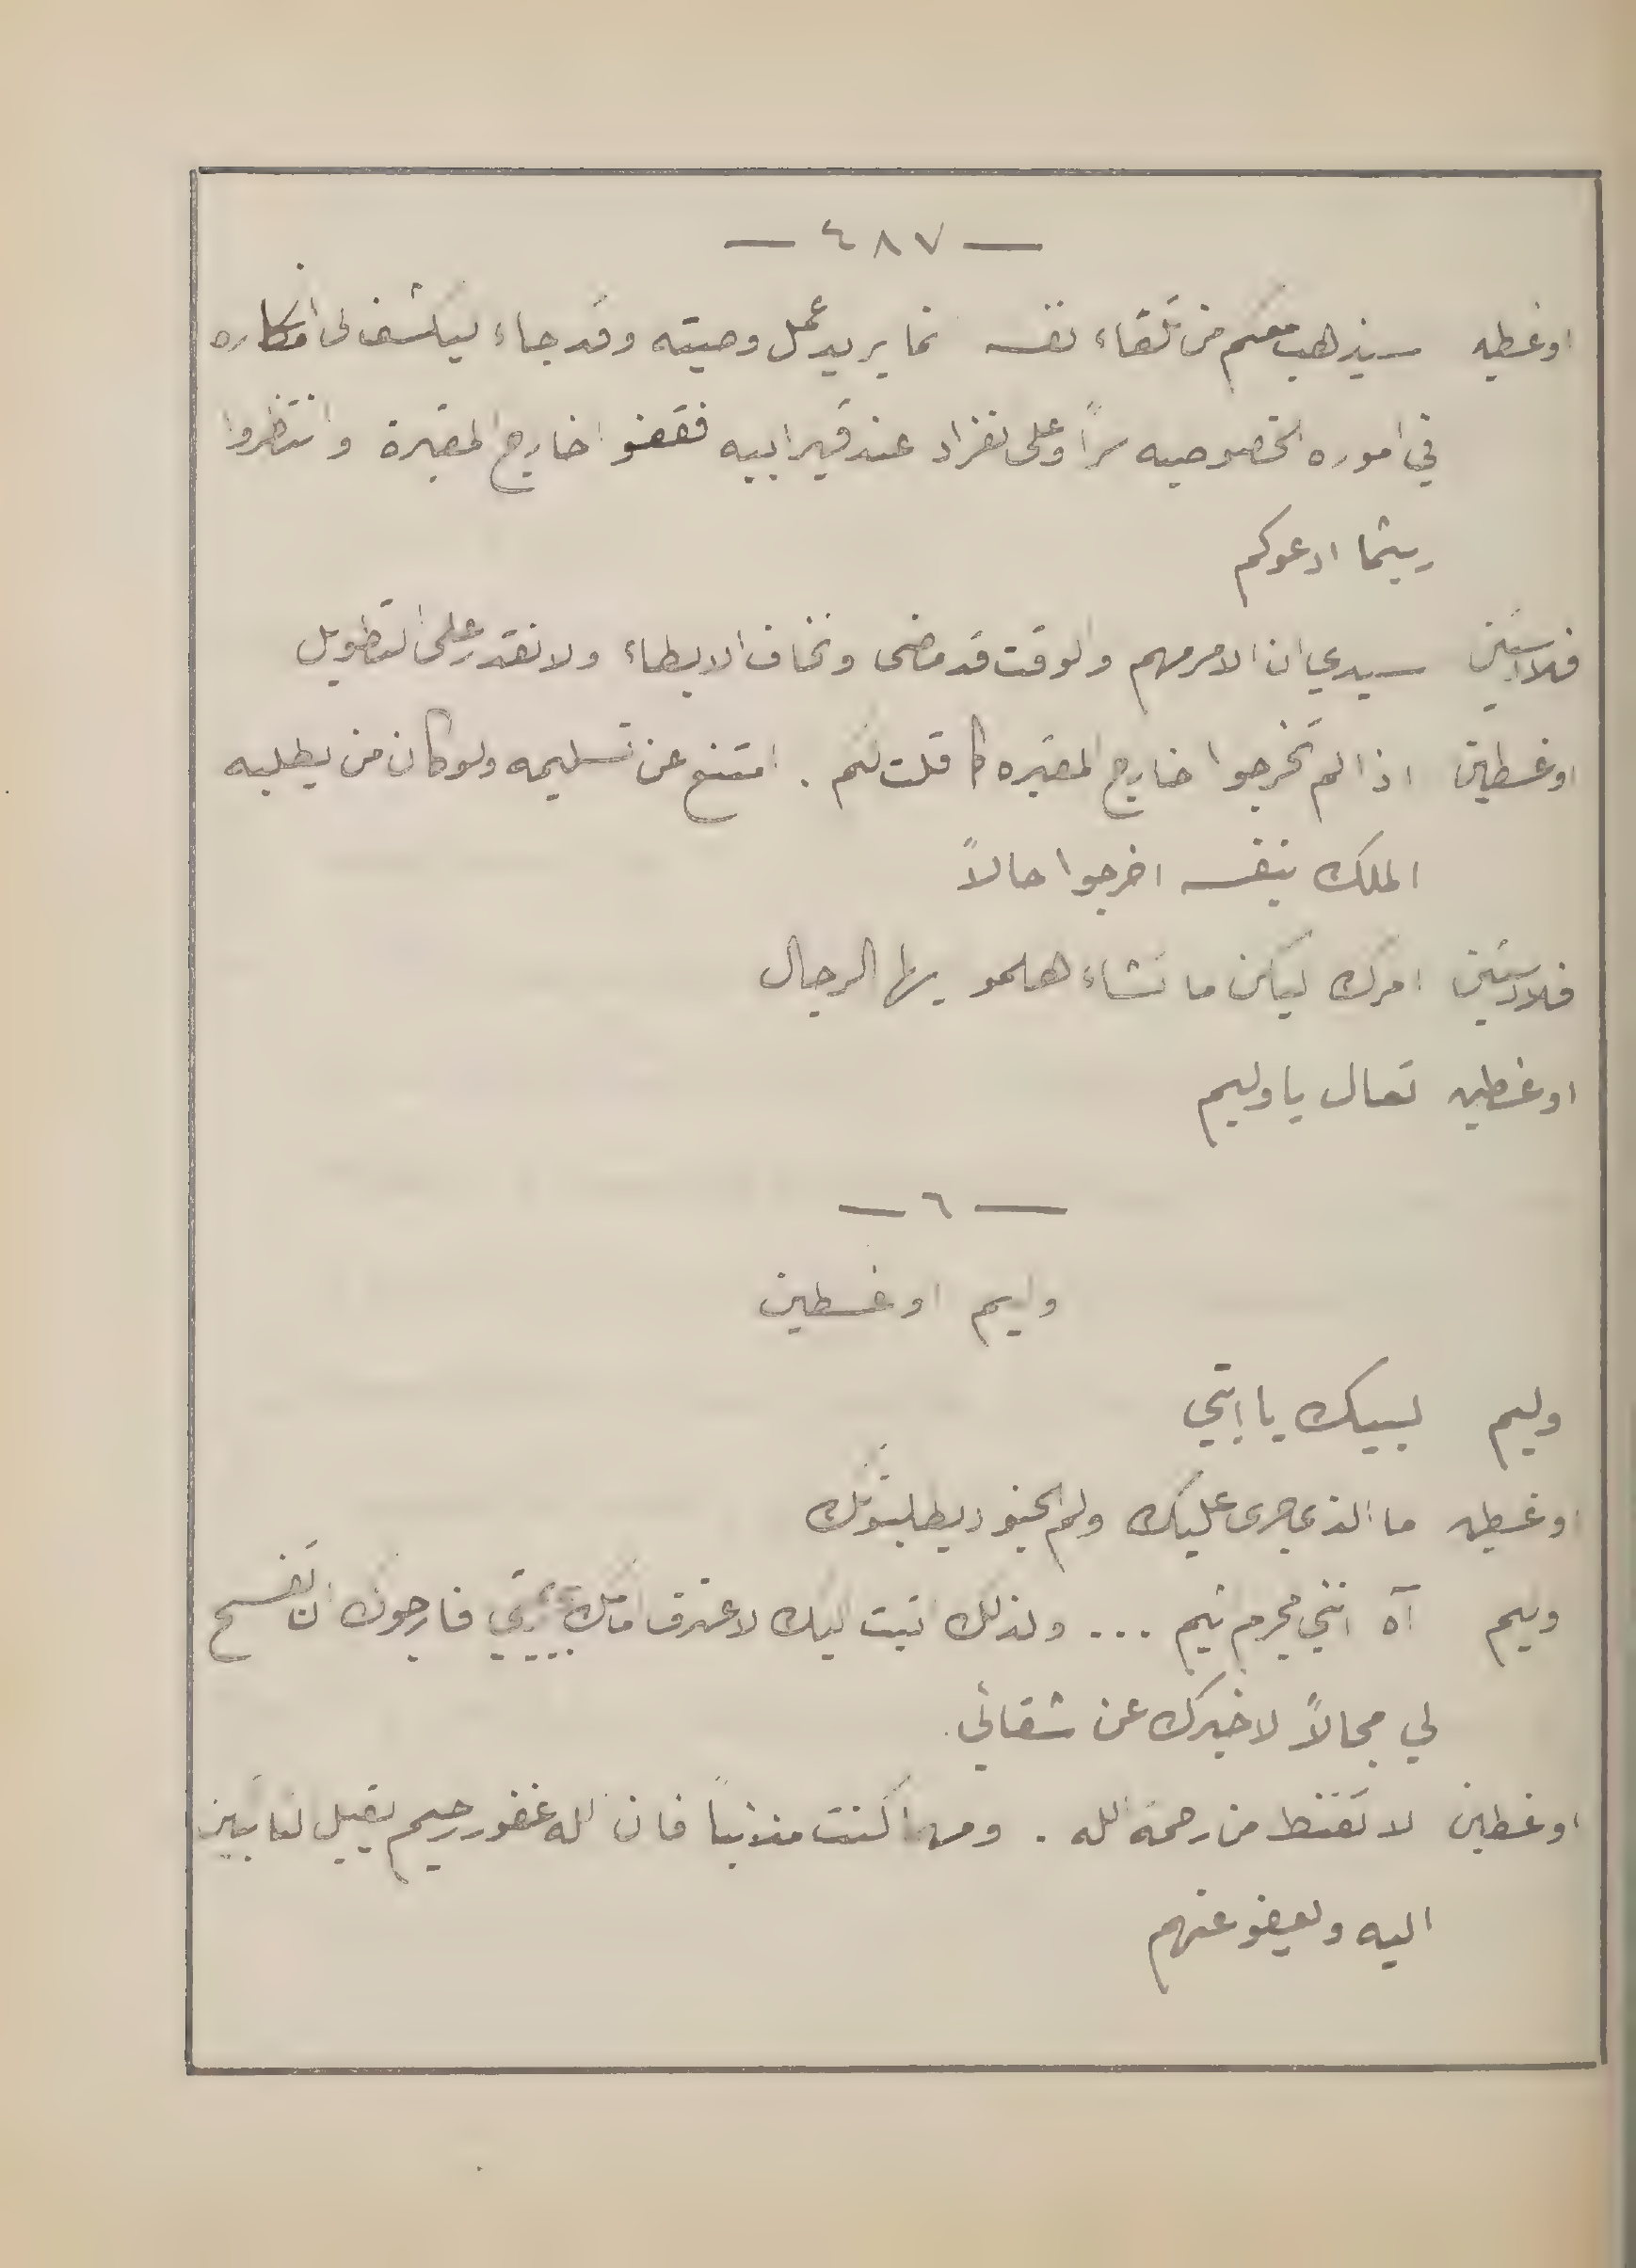 — ٤٨٧ —
اوغسطين سيذهب معكم من تلقاء نفسه انما يريد عمل وصيته وقد جاء ليكشف لي افكاره
في اموره الخصوصيه سراً وعلى انفراد عند قبر ابيه فقفوا خارج المقبرة وانتظروا
ريثما ادعوكم
سيدي ان الامر مهم والوقت قد مضى ونخاف الابطاء ولا نقدر على التطويل
اوغسطين اذا لم تخرجوا خارج المقبره كما قلت لكم . امتنع عن تسليمه ولو كان من يطلبه
الملك بنفسه اخرجوا حالاً
امرك ليكن ما تشاء هلموا ايها الرجال
اوغسطين تعال يا وليم
— ٦ —
وليم اوغسطين
وليم لبيك يا ابتي
اوغسطين ما الذي جرى عليك ولم الجنود يطلبونك
وليم آه انني مجرم اثيم ... ولذلك اتيت اليك لاعترف امامك فارجوك ان تفسح
لي مجالاً لاخبرك عن شقائي.
اوغسطين لا تقنط من رحمة الله . ومهما كنت مذنباً فان الله غفور رحيم يقبل التائبين
اليه ويعفو عنهم